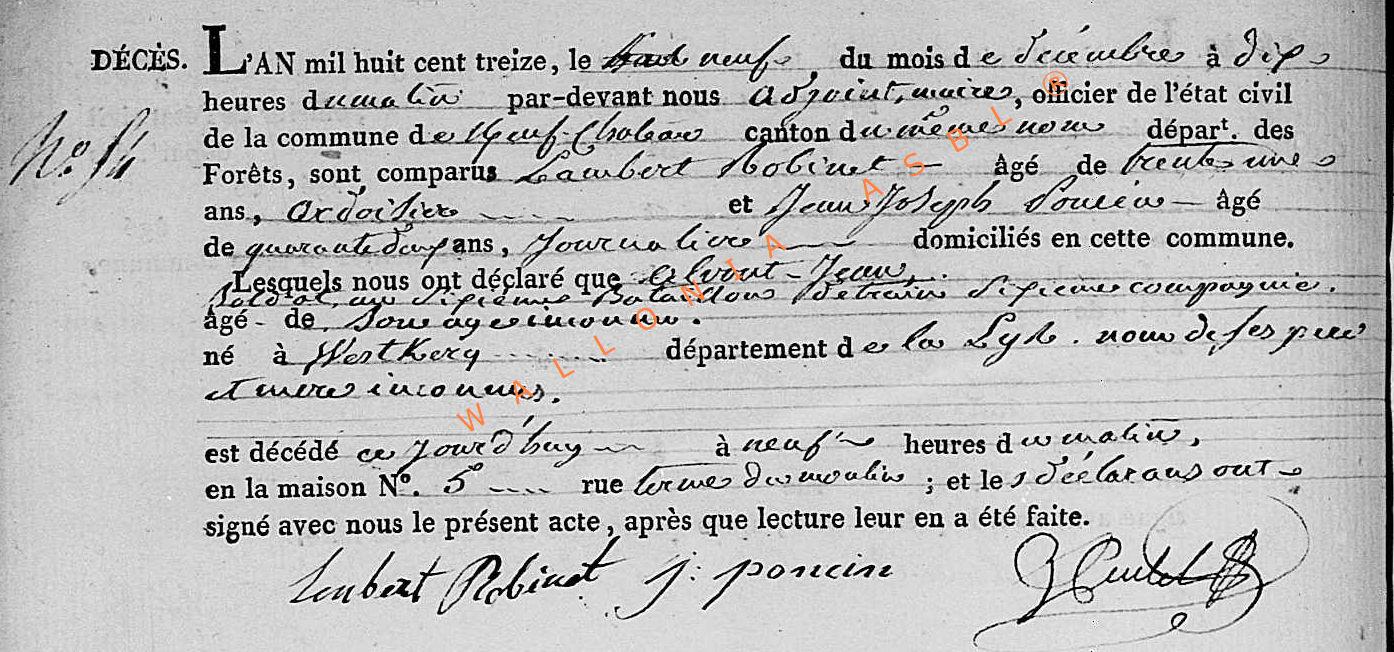 DÉCÈS. L'AN mil huit cent treize, le neuf du mois de décembre à dix
heures du matin par-devant nous adjoint, maire, officier de l'état civil
No. 54
de la commune de Neuf-Chateau canton du même nom départ. des
Forêts, sont comparus Lambert Robinet âgé de trente une
ans, ardoisier et Jean Joseph Poncin âgé
de quarante cinq ans, Journalier domiciliés en cette commune.
Lesquels nous ont déclaré que Jean,
Soldat au Bataillon de train compagnie.
âgé de Son age inconnu.
né à Westkerq département de la Lys. nom de ses pere
et mere inconnus.
est décédé ce jourd'huy à neuf heures du matin,
en la maison No. 5 rue terme du moulin ; et les déclarans ont
signé avec nous le présent acte, après que lecture leur en a été faite.
Lambert Robinet j: poncin
WALLONIA ASBL ®